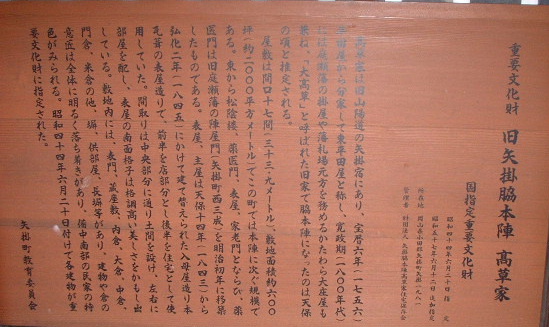 重要文化財 旧矢掛脇本陣 高草家
国指定重要文化財
昭和四十四年六月二十日 指定
高草家は旧山陽道の矢掛宿にあり、宝暦六年(一七五六)
本田屋から分家して東平田屋と称し、寛政期(一八〇〇年代)
には庭瀬藩の掛屋や藩札場元方を務めるかたわら大庄屋も
兼ね、「大高草」と呼ばれた旧家で脇本陣になったのは天保
の頃と推定される。
屋敷は間口十七間(三十三・九メートル)、敷地面積約六〇〇
坪(約二〇〇〇平方メートル)でこの町では本陣に次ぐ規模で
ある。東から松陰楼、薬医門、表屋、家老門とならび、薬
医門は旧庭瀬藩の陣屋門(矢掛町西三成)を明治初年に移築
したものである。表屋、主屋は天保十四年(一八四三)から
弘化二年(一八四五)にかけて建て替えられた入母屋造り本
瓦葺の表屋造りで、前半を店部分とし後半を住宅として使
用していた。間取りは中央部分に通り土間を設け、左右に
部屋を配し、表屋の南面格子は格調高い美しさをかもし出
している。敷地内には、表門、蔵座敷、内倉、大倉、中倉、
門倉、米倉の他、塀、供部屋、長塀等があり、建物や倉の
意匠は全体に明るく落ち着きがあり、備中南部の民家の特
色がみられる。昭和四十四年六月二十日付けで各建物が重
要文化財に指定された。
矢掛町教育委員会